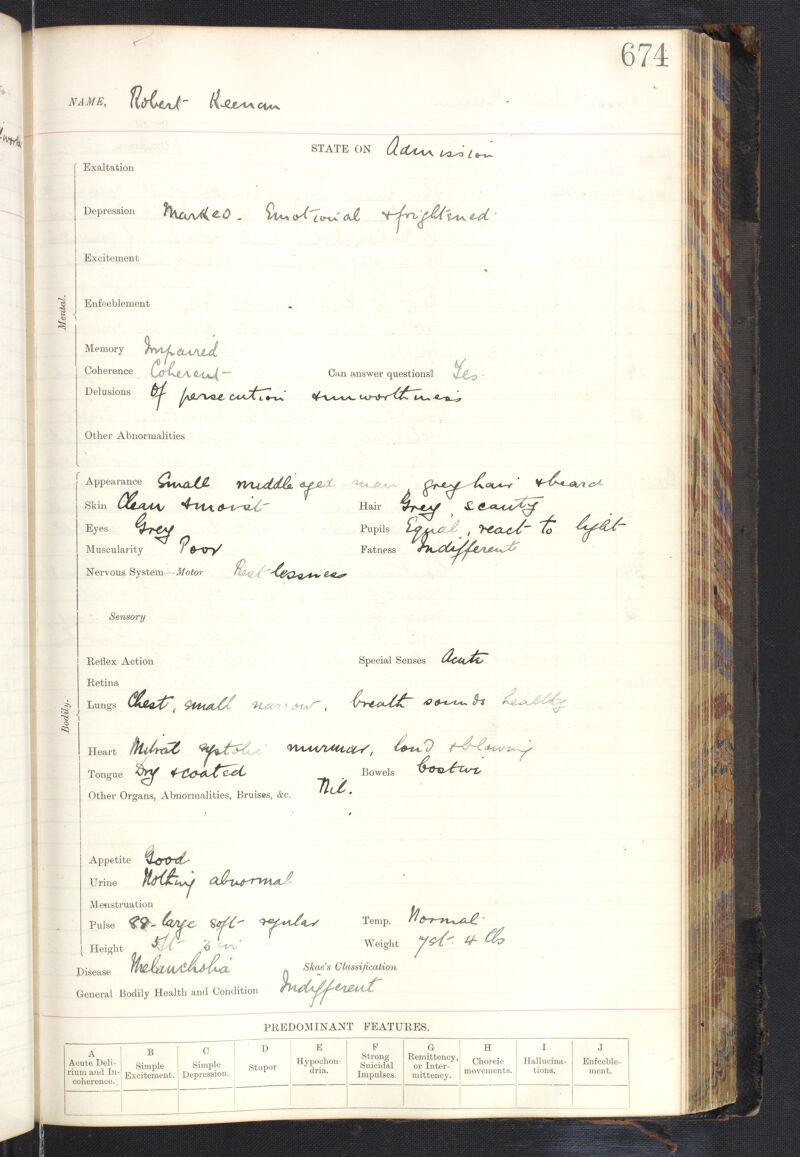 674
NAME, Robert Keenan
STATE ON Admission
Mental.
Exaltation
Depression Marked. Emotional & frightened.
Excitement
Enfeeblement
Memory Impaired
Coherence Coherent Can answer questions? Yes.
Delusions Of persecution & unworthiness
Other Abnormalities
Bodily.
Appearance Small middle aged man, grey hair & beard
Skin Clean & moist Hair Grey, scanty
Eyes Grey Pupils Equal, react to light
Muscularity Poor Fatness Indifferent
Nervous System—Motor Restlessness
Sensory
Reflex Action Special Senses Acute
Retina
Lungs Chest, small narrow, breath sounds healthy
Heart Mitral systolic murmur, loud & blowing
Tongue Dry & coated Bowels Costive
Other Organs, Abnormalities, Bruises, &c. Nil.
Appetite Good.
Urine Nothing abnormal
Menstruation
Pulse 88 - large soft regular Temp. Normal.
Height 5ft 3 in Weight 7st. 4 lbs
Disease Melancholia Skae's Classification
General Bodily Health and Condition Indifferent
PREDOMINANT FEATURES.
A B C D E F G H I J
Acute Delirium and Incoherence. Simple Excitement. Simple Depression. Stupor Hypochondria. Strong Suicidal Impulses. Remittency, or Intermittency. Choreic movements. Hallucinations. Enfeeblement.